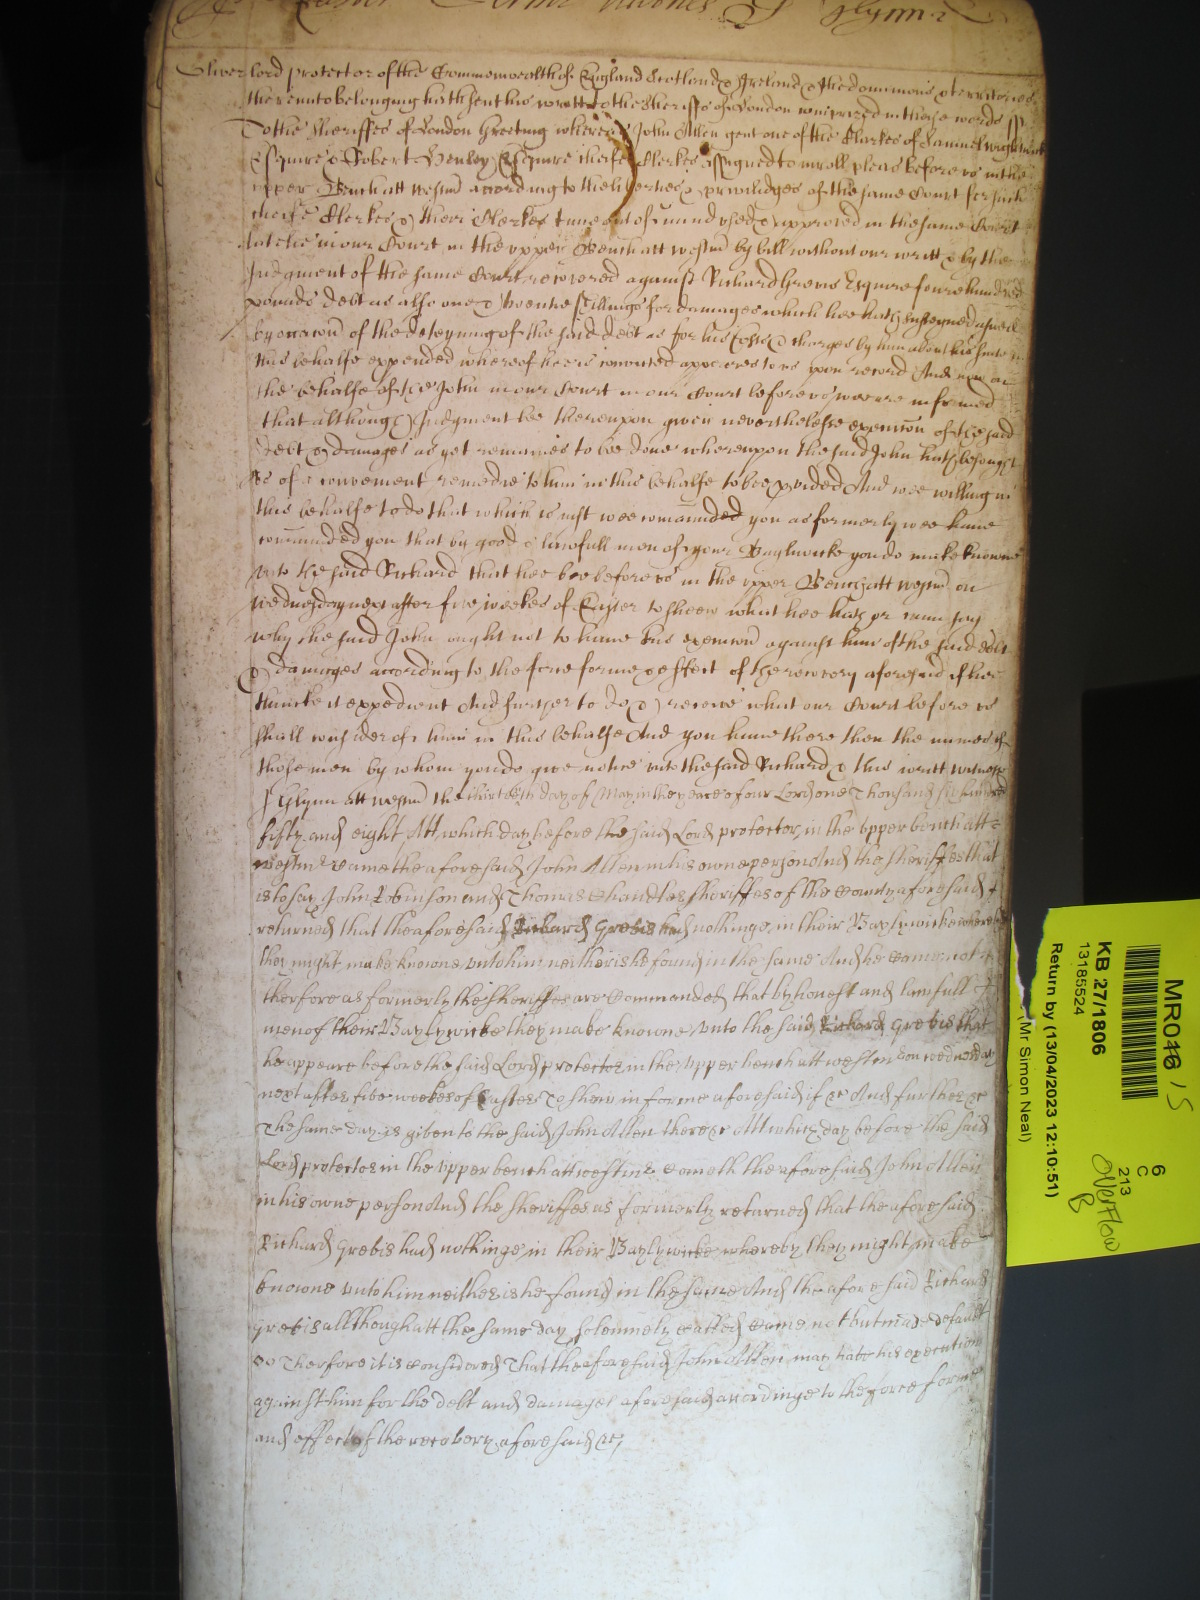 Easter Terme Glynn
Oliver lord protector of the Commonwealth of England Scotland & Ireland & the dominions & territories
thereunto belonging hath sent his writt to the Sheriffs of London in these words ss
To the Sheriffes of London Greeting whereas John Allen gent one of the Clarkes of Samuel Wightwick
Esquire & Robert Henley Esquire cheife Clerkes assigned to inroll pleas before us in the
upper Bench att Westmr according to the liberties & priviledges of the same Court for such
cheife Clerkes & their Clerkes tyme out of mind used & approved in the same Court
latelie in our Court in the upper Bench att Westmr by bill without our writt & by the
Judgment of the same Court recovered against Richard Grevis Esquire foure hundred
pounds debt as also one & twentie shillings for damages which hee hath susteyned aswell
by occacon of the deteyning of the said debt as for his Costs & charges by him about his suite in
this behalfe expended whereof hee is convicted appeares to us upon record And now on
the behalfe of the John in our Court in our Court before us wee are informed
that although Judgment bee thereupon given neverthelesse execucon of the said
debt & damages as yet remaines to be done whereupon the said John hath besought
us of a convenient remedie to him in this behalfe to bee pvided And wee willing in
this behalfe to do that which is just wee comaunded you as formerly wee have
comaunded you that by good & lawfull men of your Baylywicke you do make knowne
unto the said Richard that hee bee before us in the upper Bench att Westmr on
Wednesday next after five weekes of Easter to shew what hee hath or cann say
why the said John ought not to have his execucon against him of the said debt
& damages according to the force forme & effect of the recovery aforesaid if hee
thincke it expedient And further to do & receive what our Court before us
shall consider of him in this behalfe And you have there then the names of
those men by whom you do give notice unto the said Richard & this writt witnes
J Glynn att Westmr the thirteenth day of May in the yeare of our Lord one Thousand six hundred
fifty and eight Att which day before the said Lord protector, in the upper bench att
westmr came the aforesaid John Allen in his owne person And the sheriffes that
is to say John Robinson and Thomas Chandler sheriffes of the county aforesaid
returned that the aforesaid Richard Grevis had nothinge in their Baylywicke whereby
they might make knowne unto him neither is he found in the same And he came not
therfore as formerly the sheriffes are Commanded that by honest and lawfull
men of their Baylywicke they make knowne unto the said Richard Grevis that
he appeare before the said Lord protector in the upper bench att westmr on wednesday
next after five weekes of Easter To shew in forme aforesaid if &c And further &c
The same day is given to the said John Allen there &c Att which day before the said
Lord protector in the upper bench att westmr cometh the aforesaid John Allen
in his owne person And the sheriffes as formerly returned that the aforesaid
Richard Grevis had nothinge in their Baylywicke whereby they might make
knowne unto him neither is he found in the same And the aforesaid Richard
Grevis allthough att the same day solemnely called came not but made default
Therfore it is considered That the aforesaid John Allen may have his execution
against him for the debt and damages aforesaid accordinge to the force forme
and effect of the recovery aforesaid &c
MR046 / 5
6
C
213
Overflow
B
KB 27/1806
13185524
Return by (13/04/2023 12:10:51)
(Mr Simon Neal)